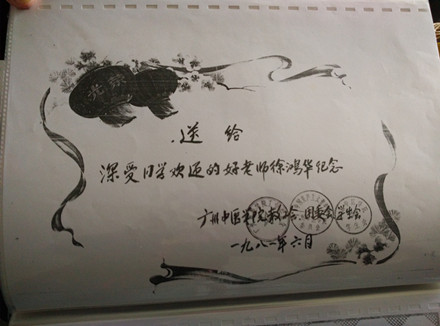 光荣
送给
深受同学欢迎的好老师徐鸿华纪念
广州中医学院教工会、团委会、学生会
一九八一年六月